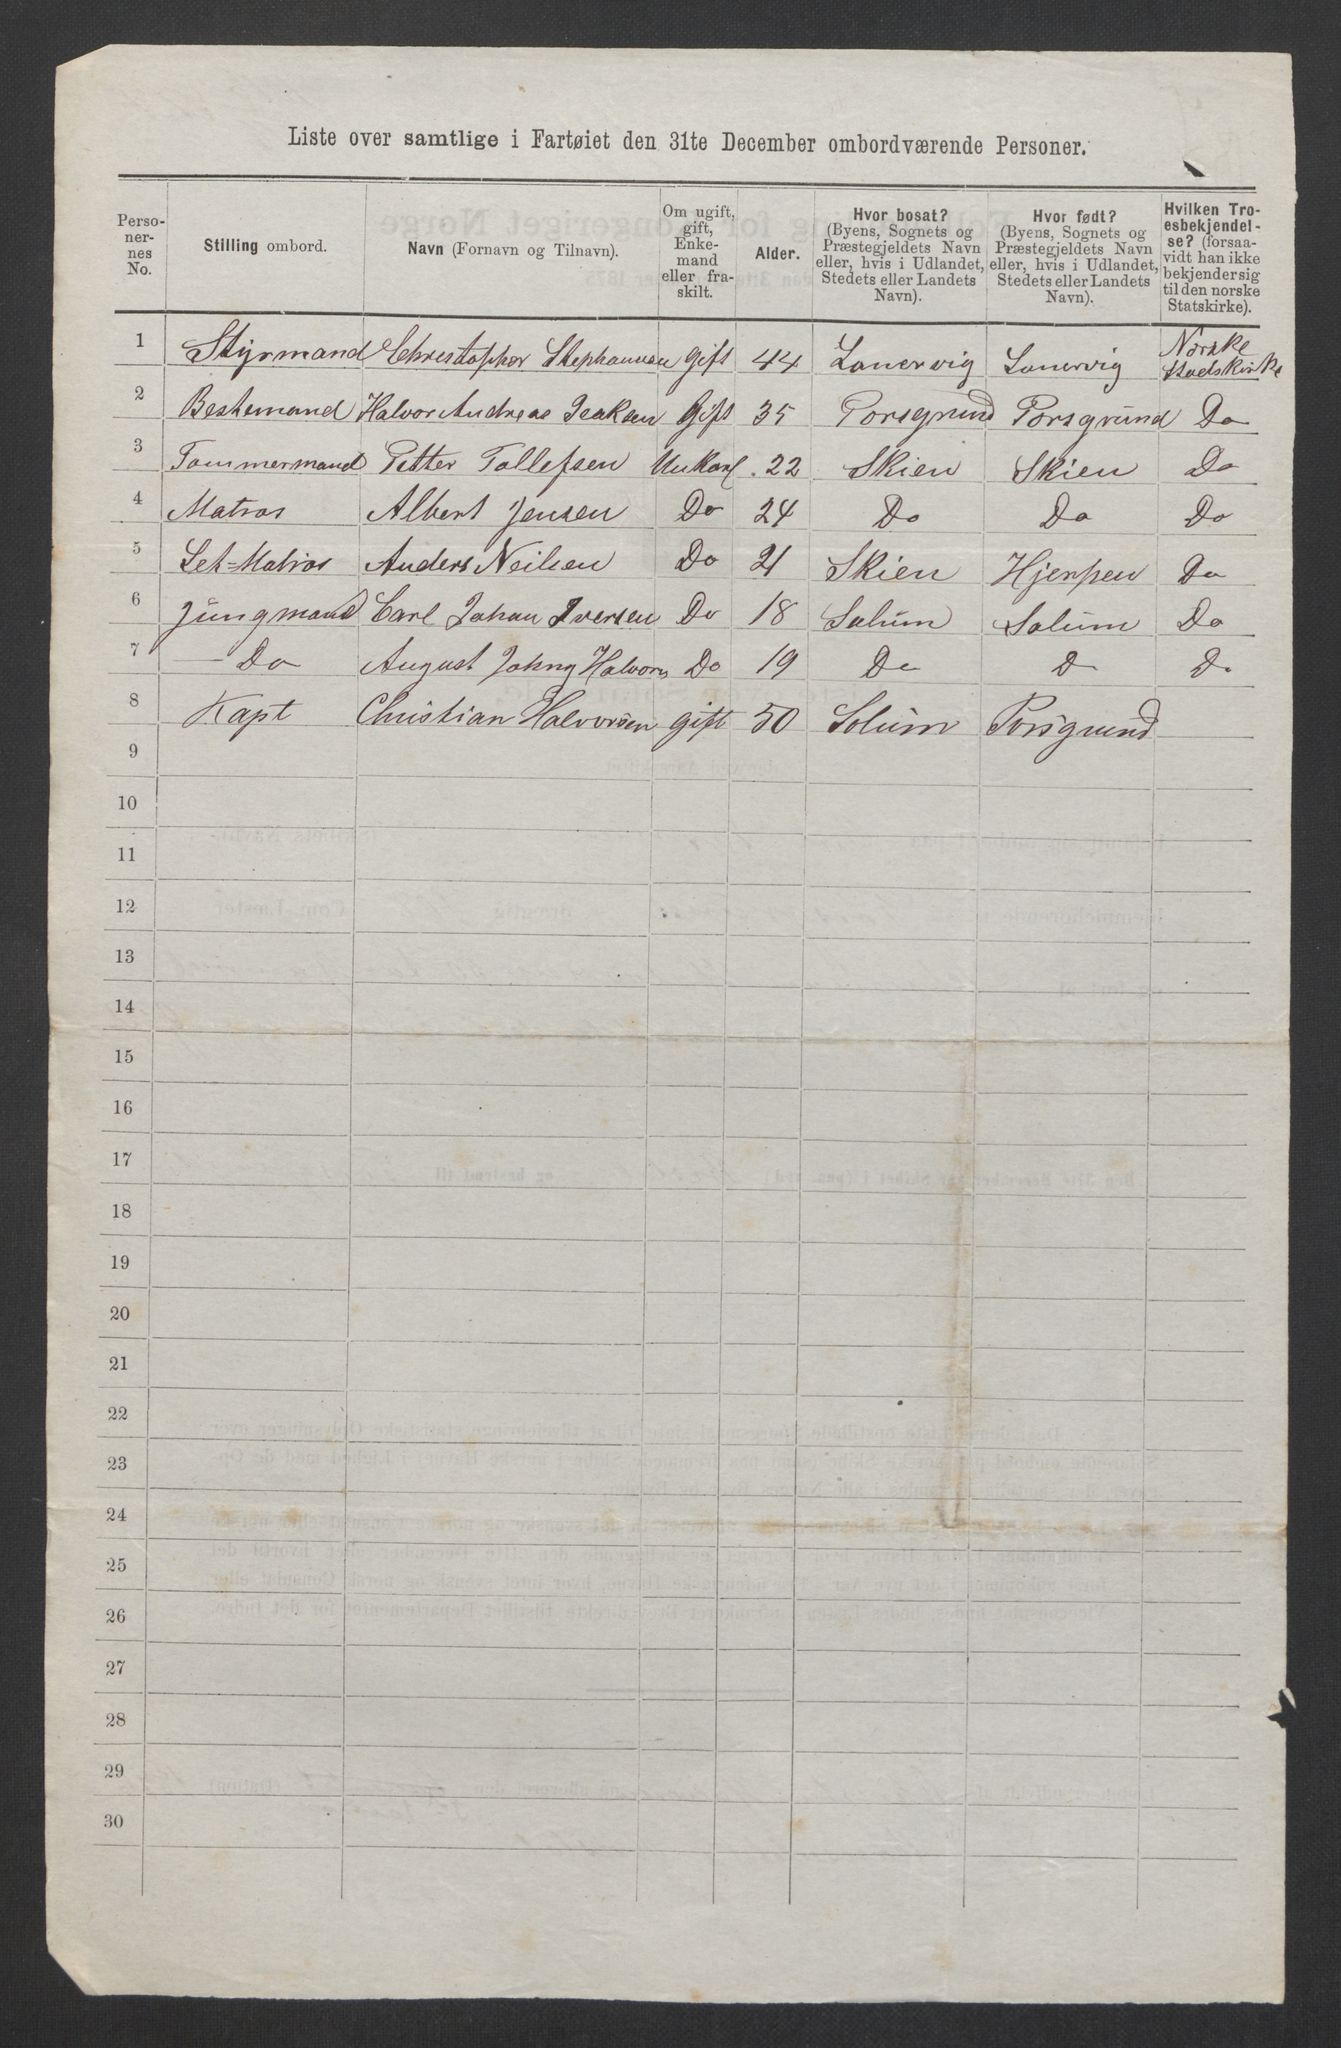 Liste over samtlige i Fartøiet den 31te December ombordværende Personer.
Perso-nernes No. Stilling ombord. Navn (Fornavn og Tilnavn). Om ugift, gift, Enkemand eller fraskilt. Alder. Hvor bosat? (Byens, Sognets og Præstegjeldets Navn eller, hvis i Udlandet, Stedets eller Landets Navn). Hvor født? (Byens, Sognets og Præstegjeldets Navn eller, hvis i Udlandet, Stedets eller Landets Navn). Hvilken Troesbekjendelse? (forsaavidt han ikke bekjender sig til den norske Statskirke).
1 Styrmand Christopher Stephansen gift 44 Laurvig Laurvig Norske Stadskirke
2 Bestemand Halvor Andreas Isaksen Gift 35 Porsgrund Porsgrund Do
3 Tømmermand Petter Tollefsen Unkarl 22 Skien Skien Do
4 Matros Albert Jensen Do 24 Do Do Do
5 Let=Matros Anders Neilsen Do 21 Skien Hjerpen Do
6 Jungmand Carl Johan Iversen Do 18 Solum Solum Do
7 — Do August Johny Halvors Do 19 Do D Do
8 Kapt Christian Halvorsen gift 50 Solum Porsgrund
9
10
11
12
13
14
15
16
17
18
19
20
21
22
23
24
25
26
27
28
29
30